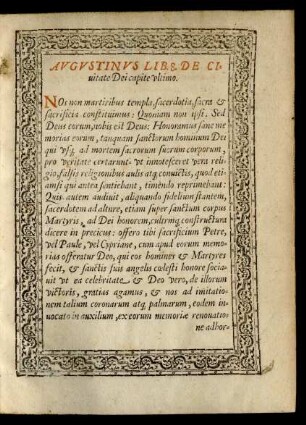 AVGVSTINVS LIB. 8. DE CI-
uitate Dei capite vltimo.
NOs non martiribus templa, sacerdotia, sacra &
sacrificia constituimus: Quoniam non ipsi, Sed
Deus eorum, nobis est Deus: Honoramus sane me
morias eorum, tanquam sanctorum hominum Dei
qui vsq; ad mortem sacrorum suorum corporum,
pro veritate certarunt, vt innotesceret vera reli-
gio, falsis religionibus aulis atq conuictis, quod eti-
amsi qui antea sentiebant, timendo reprimebant:
Quis autem audiuit, aliquando fidelium stantem,
sacerdotem ad altare, etiam super sanctum corpus
Martyris, ad Dei honorem, cultumq constructura
dicere in precicus: offero tibi sacrificium Petre,
vel Paule, vel Cypriane, cum apud eorum memo-
rias offeratur Deo, qui eos homines & Martyres
fecit, & sanctis suis angelis cœlesti honore socia-
uit vt ea celebritate & Deo vero, de illorum
victoris, gratias agamus, & nos ad imitatio-
nem talium coronarum atq palmarum, eodem in-
uocato in auxilium, ex eorum memoriæ renouatio-
ne adhor-